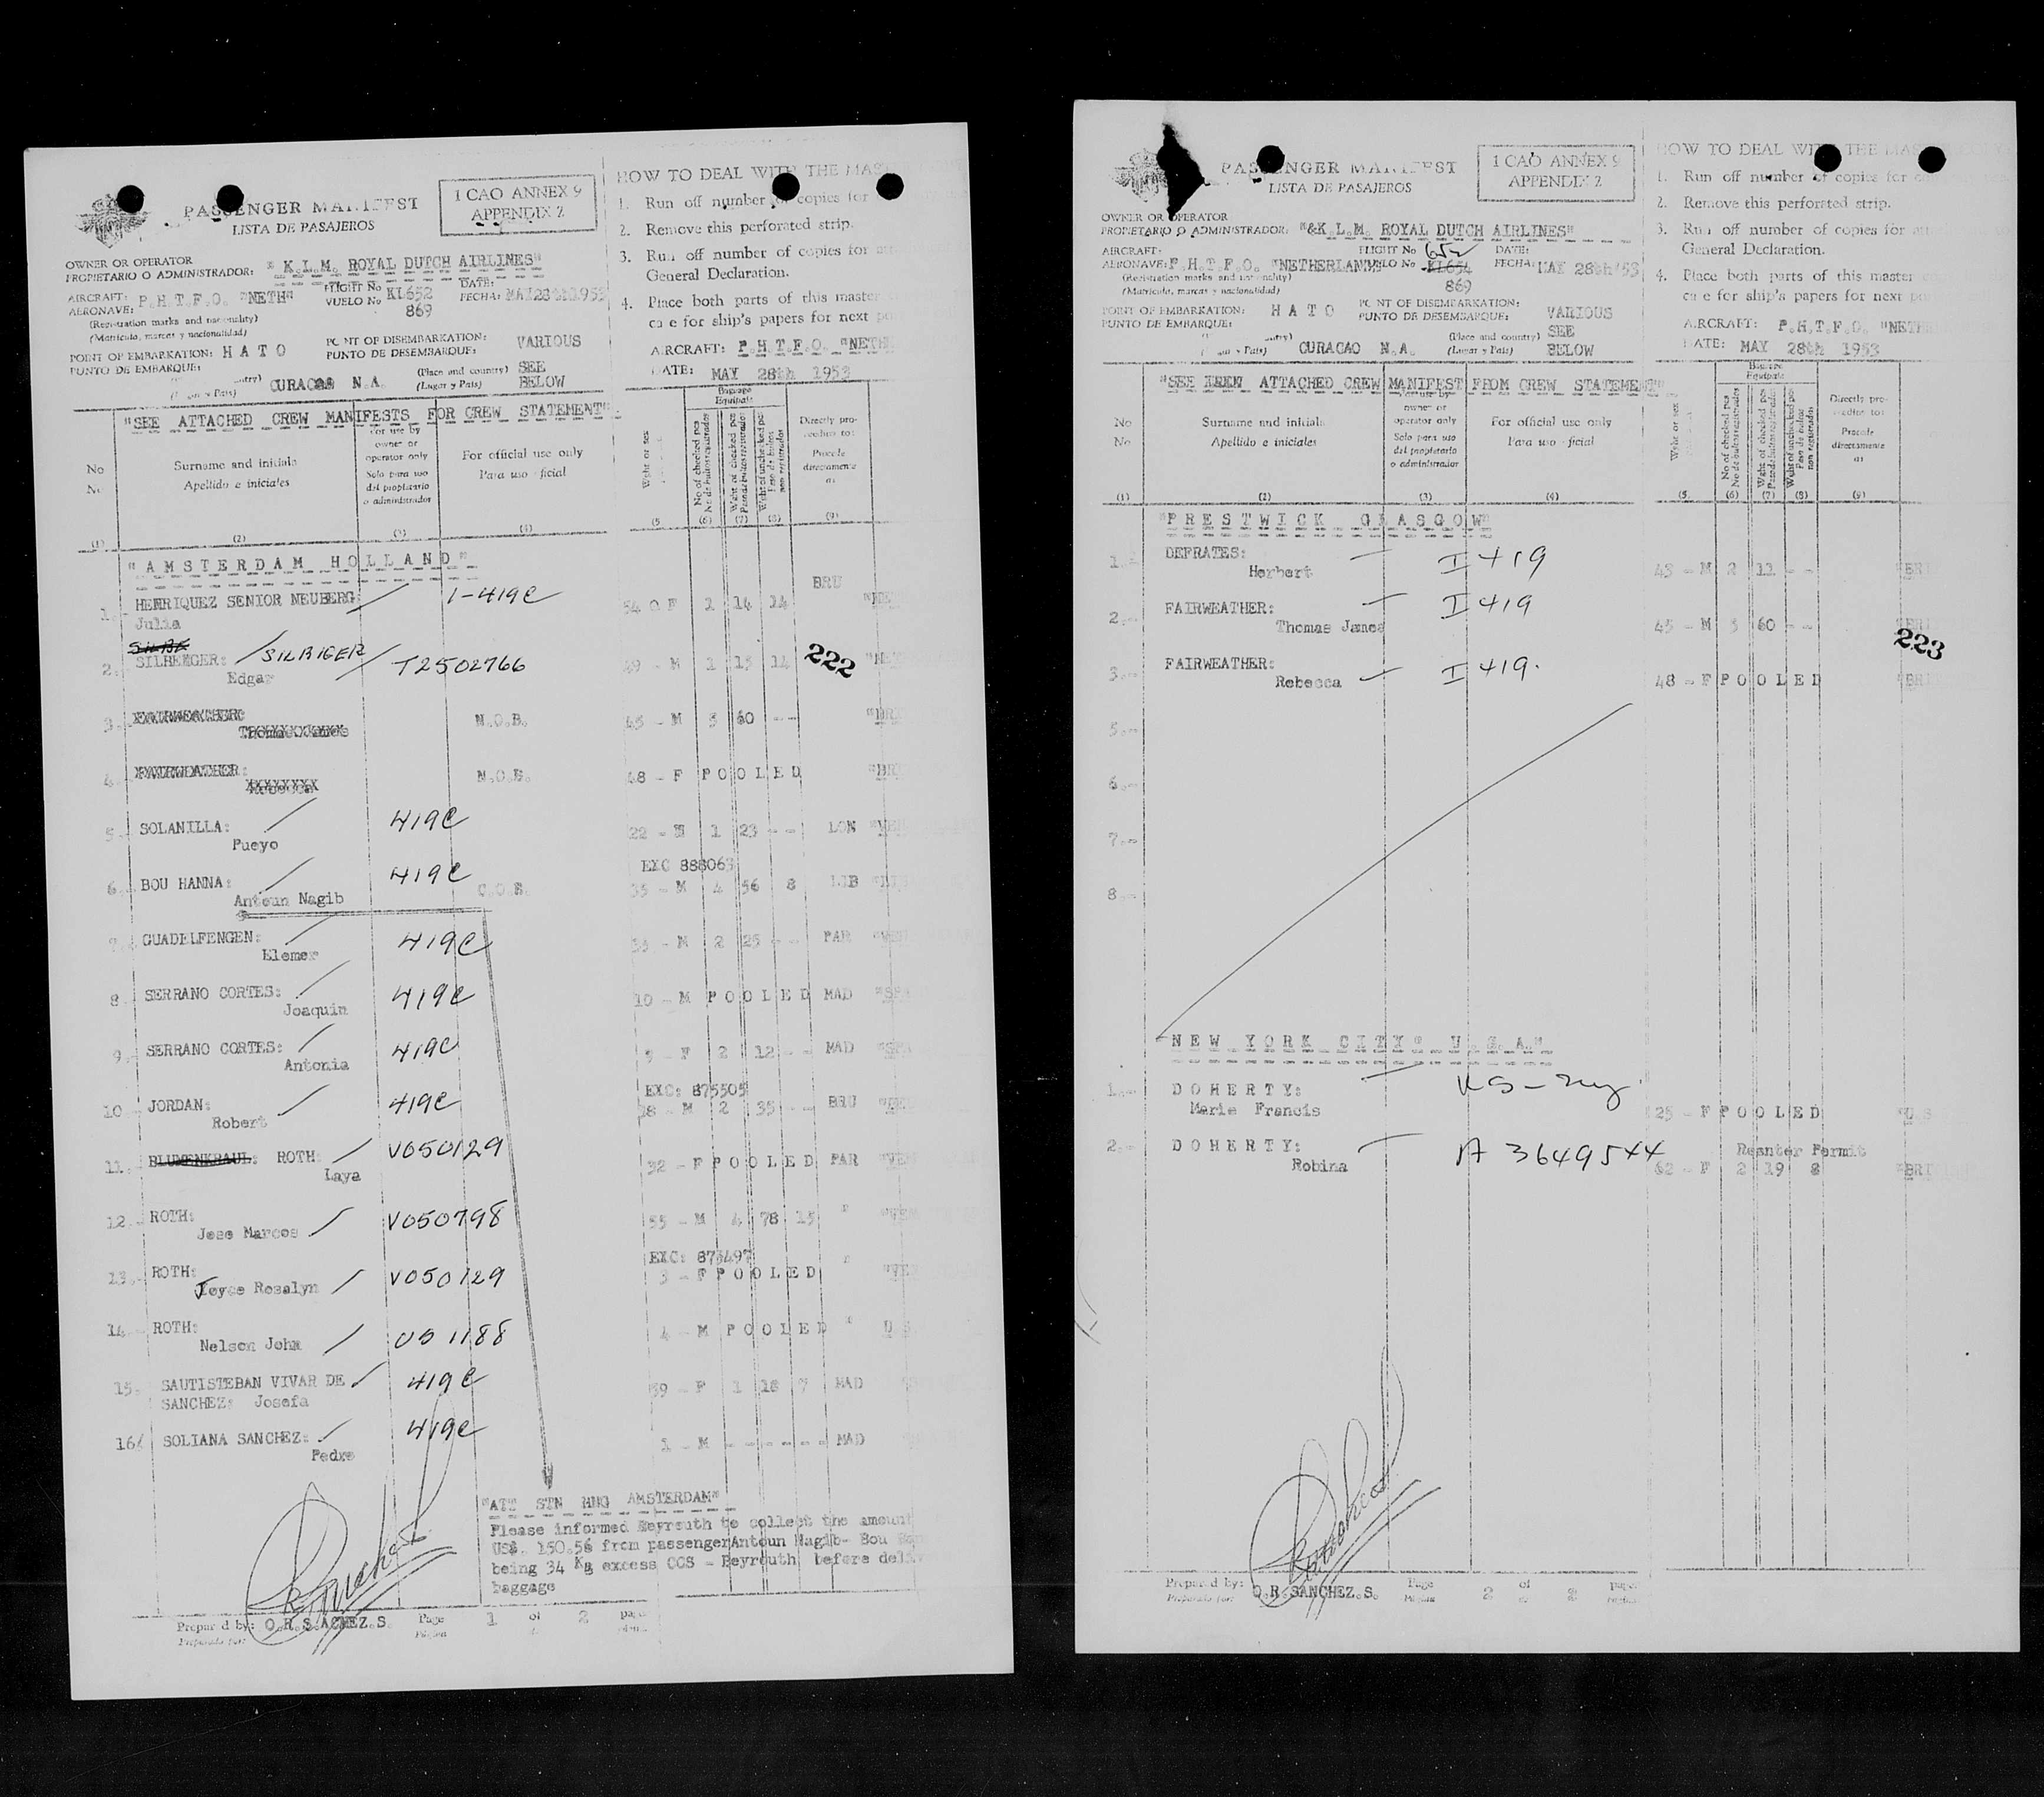 PASSENGER MANIFEST
LISTA DE PASAJEROS
I CAO ANNEX 9
APPENDIX 2
OWNER OR OPERATOR
PROPIETARIO O ADMINISTRADOR: "K.L.M. ROYAL DUTCH AIRLINES"
AIRCRAFT: FLIGHT No DATE:
AERONAVE: P.H.T.F.O. "NETH" VUELO No KL652 FECHA: MAY 28th 1953
869
(Registration marks and nationality)
(Matricula, marcas y nacionalidad)
POINT OF EMBARKATION: HATO POINT OF DISEMBARKATION: VARIOUS
PUNTO DE EMBARQUE: PUNTO DE DESEMBARQUE:
(Place and country) SEE
CURACAO N.A. (Lugar y Pais) BELOW
HOW TO DEAL WITH THE MAS
1. Run off number of copies for
2. Remove this perforated strip.
3. Run off number of copies for
General Declaration.
4. Place both parts of this master
for ship's papers for next
AIRCRAFT: P.H.T.F.O. "NETH
DATE: MAY 28th 1953
"SEE ATTACHED CREW MANIFESTS FOR CREW STATEMENT"
No Surname and initials For use by owner or operator only For official use only
No Apellido e iniciales Solo para uso del propietario o administrador Para uso oficial
Baggage
Equipaje
No of checked pcs
Weight of checked pcs
Weight of unchecked pcs
Directly proceeding to:
Procede directamente a:
(1) (2) (3) (4) (5 (6) (7) (8) (9)
"AMSTERDAM HOLLAND"
1. HENRIQUEZ SENIOR NEUBERG: 1-419C 54 F 1 14 14 BRU
Julia
2. SILBENGER: SILBIGER T2502766 49 - M 1 15 14
Edgar
222
3. FAIRWEATHER N.O.B. 45 - M 5 60 --
Thomas James
4. FAIRWEATHER: N.O.B. 48 - F POOLED
Rebecca
5. SOLANILLA: 419C 22 - M 1 23 -- LON
Pueyo
EXC 888063
6. BOU HANNA: 419C C.O.B. 35 - M 4 56 8 LIB
Antoun Nagib
7. GUADELFENGEN: 419C 35 - M 2 25 -- PAR
Elemer
8. SERRANO CORTES: 419C 10 - M POOLED MAD "SPA
Joaquin
9. SERRANO CORTES: 419C 9 - F 2 12 -- MAD "SPA
Antonia
EXC: 875505
10. JORDAN: 419C 38 - M 2 35 -- BRU
Robert
11. BLUMENKRAUL: ROTH: V050129 32 - F POOLED PAR
Laya
12. ROTH: V050798 55 - M 4 78 15 "
Jose Marcos
EXC: 873497
13. ROTH: V050129 3 - F POOLED "
Joyce Rosalyn
14. ROTH: US 1188 4 - M POOLED "
Nelson John
15. SAUTISTEBAN VIVAR DE 419C 39 - F 1 18 7 MAD
SANCHEZ: Josefa
16. SOLIANA SANCHEZ: 419C 1 - M ------ MAD
Pedro
"ATT STN MNG AMSTERDAM"
Please informed Beyrouth to collect the amount
US$. 150.56 from passenger Antoun Nagib- Bou
being 34 Kg excess CCS - Beyrouth before
baggage
Prepared by: O.R.S.ACHEZ.S. Page 1 of 2
Preparado por: Página
PASSENGER MANIFEST
LISTA DE PASAJEROS
I CAO ANNEX 9
APPENDIX 2
OWNER OR OPERATOR
PROPIETARIO O ADMINISTRADOR: "&K.L.M. ROYAL DUTCH AIRLINES"
AIRCRAFT: FLIGHT No 652 DATE:
AERONAVE: P.H.T.F.O. "NETHERLANDS" VUELO No KL654 FECHA: MAY 28th/53
869
(Registration marks and nationality)
(Matricula, marcas y nacionalidad)
POINT OF EMBARKATION: HATO POINT OF DISEMBARKATION: VARIOUS
PUNTO DE EMBARQUE: PUNTO DE DESEMBARQUE:
(Place and country) SEE
CURACAO N.A. (Lugar y Pais) BELOW
HOW TO DEAL WITH THE MAS
1. Run off number of copies for
2. Remove this perforated strip.
3. Run off number of copies for
General Declaration.
4. Place both parts of this master
for ship's papers for next
AIRCRAFT: P.H.T.F.O. "NETH
DATE: MAY 28th 1953
"SEE ATTACHED CREW MANIFEST FROM CREW STATEMENT"
No Surname and initials For use by owner or operator only For official use only
No Apellido e iniciales Solo para uso del propietario o administrador Para uso oficial
Baggage
Equipaje
No of checked pcs
Weight of checked pcs
Weight of unchecked pcs
Directly proceeding to:
Procede directamente a:
(1) (2) (3) (4) (5. (6) (7) (8) (9)
"PRESTWICK GLASGOW"
1.- DEFRATES: I 419 43 - M 2 11 --
Herbert
2.- FAIRWEATHER: I 419 45 - M 5 60 --
Thomas James
223
3.- FAIRWEATHER: I 419. 48 - F POOLED
Rebecca
5.-
6.-
7.-
8.-
"NEW YORK CITY" U.S.A."
1.- DOHERTY: US - 25 - F POOLED
Marie Francis
2.- DOHERTY: A 3649544 Reenter Permit
Robina 62 - F 2 19 8
Prepared by: O.R.SANCHEZ.S. Page 2 of 2
Preparado por: Página